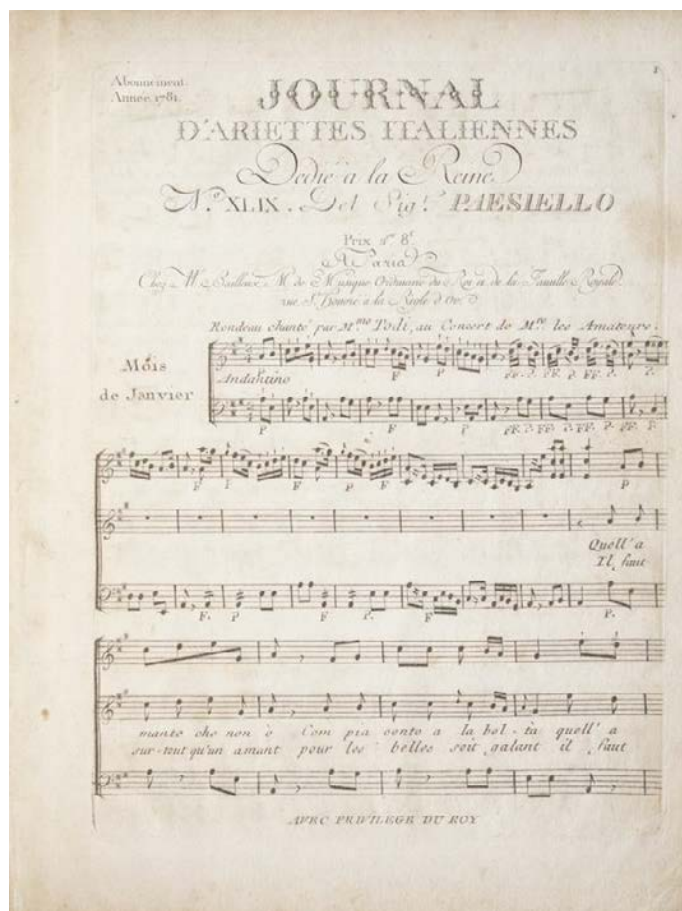 Abonnement.
Année 1781.
1
JOURNAL
D'ARIETTES ITALIENNES
Dedié a la Reine
N.º XLIX. Del Sig.r PAESIELLO
Prix
A Paris
Chez M. Bailleux M.d de Musique Ordinaire du Roi et de la Famille Royale
rue S.t Honoré a la Regle d'Or.
Rondeau chanté par M.me Todi, au Concert de M.rs les Amateurs.
Mois
de Janvier
Andantino
F P FF. P. FF. P. FF. P. FF. P.
P F P FF. P. FF. P. FF. P. FF. P.
F F F P F P
Quell'a
Il faut
F. P F P. F P.
mante che non è Com pia cente a la bel-tà quell'a
sur-tout qu'un amant pour les belles soit galant il faut
AVEC PRIVILEGE DU ROY